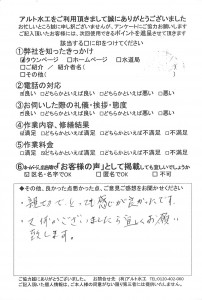 アルト水工をご利用頂きまして誠にありがとうございました
お忙しいところ誠に申し訳ございませんが、アンケートにご協力お願いします
ご記入頂いたお客様には、次回使用できるポイントを進呈させて頂きます
該当する□に印をつけてください
①弊社を知ったきっかけ
☑タウンページ □ホームページ □水道局
□ご紹介 / ご紹介者名(
□その他(
②電話の対応
☑良い □どちらかといえば良い □どちらかといえば悪い □悪い
③お伺いした際の礼儀・挨拶・態度
☑良い □どちらかといえば良い □どちらかといえば悪い □悪い
④作業内容、修繕結果
☑満足 □どちらかといえば満足 □どちらかといえば不満足 □不満足
⑤作業料金
□満足 □どちらかといえば満足 □どちらかといえば不満足 □不満足
「お客様の声」として掲載しても宜しいでしょうか
☑匿名・名字でOK □イニシャルでOK □不可
◆その他、良かった点悪かった点、ご意見ご感想をお聞かせください
親切でとっても感じが良かったです。
又何かございましたら宜しくお願い
致します。
ご協力誠にありがとうございました。 お問合せ先 (有)アルト水工 TEL.0120-402-000